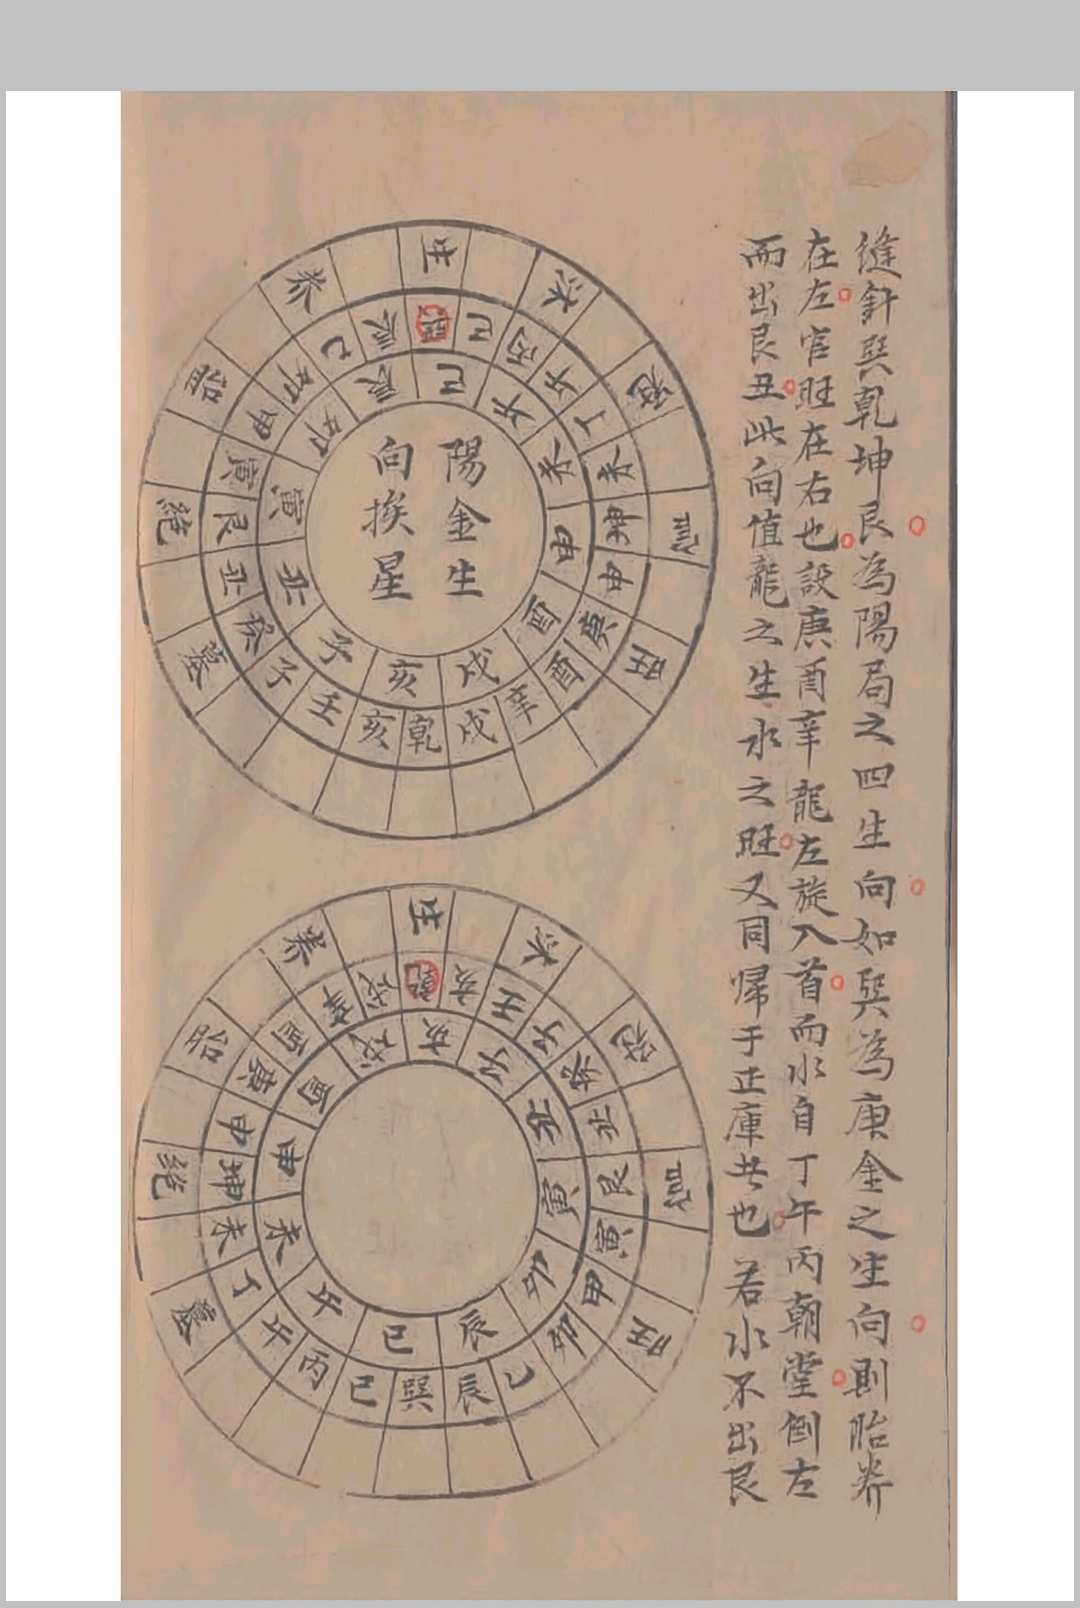 縫針巽乾坤艮為陽局之四生向如巽為庚金之生向則胎养
在左官旺在右也設庚酉辛龍左旋入首而水自丁午丙朝堂倒左
而出艮丑此向值龍之生水之旺又同帰于正庫者也若水不出艮
陽金生
向挨星
生
沐
冠
临
旺
墓
絶
胎
养
巽
巳
丙
午
丁
未
坤
申
庚
酉
辛
戌
乾
亥
壬
子
癸
丑
艮
寅
甲
卯
乙
辰
巳
午
未
申
酉
戌
亥
子
丑
寅
卯
辰
生
沐
冠
临
旺
墓
绝
胎
养
乾
亥
壬
子
癸
丑
艮
寅
甲
卯
乙
辰
巽
巳
丙
午
丁
未
坤
申
庚
酉
辛
戌
亥
子
丑
寅
卯
辰
巳
午
未
申
酉
戌